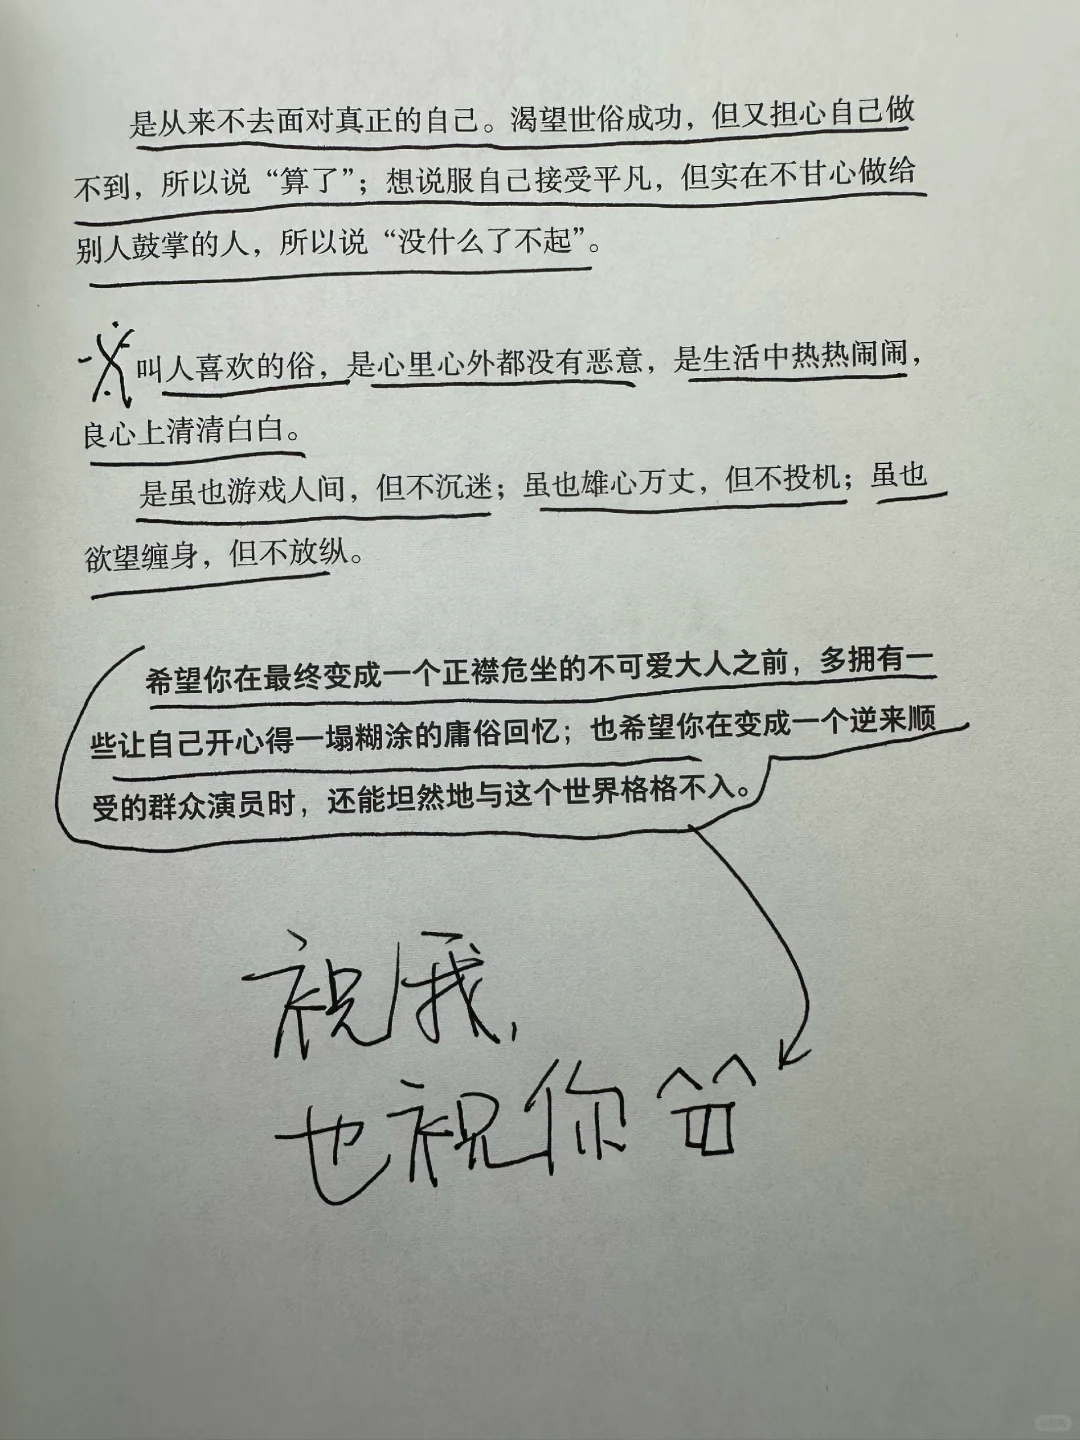 是从来不去面对真正的自己。渴望世俗成功，但又担心自己做
不到，所以说“算了”；想说服自己接受平凡，但实在不甘心做给
别人鼓掌的人，所以说“没什么了不起”。
叫人喜欢的俗，是心里心外都没有恶意，是生活中热热闹闹，
良心上清清白白。
是虽也游戏人间，但不沉迷；虽也雄心万丈，但不投机；虽也
欲望缠身，但不放纵。
希望你在最终变成一个正襟危坐的不可爱大人之前，多拥有一
些让自己开心得一塌糊涂的庸俗回忆；也希望你在变成一个逆来顺
受的群众演员时，还能坦然地与这个世界格格不入。
祝我，
也祝你